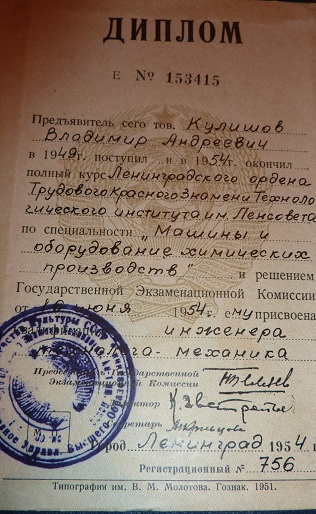 ДИПЛОМ
Е № 153415
Предъявитель сего тов. Кулишов
Владимир Андреевич
в 1949 г. поступил и в 1954 г. окончил
полный курс Ленинградского ордена
Трудового Красного Знамени Техноло
гического института им. Ленсовета
по специальности „Машины и
оборудование химических
производств" и решением
Государственной Экзаменационной Комиссии
от июня 1954 г. ему присвоена
инженера
механика
Государственной
Экзаменационной Комиссии
город Ленинград 1954 г.
Регистрационный № 756
Типография им. В. М. Молотова. Гознак. 1951.